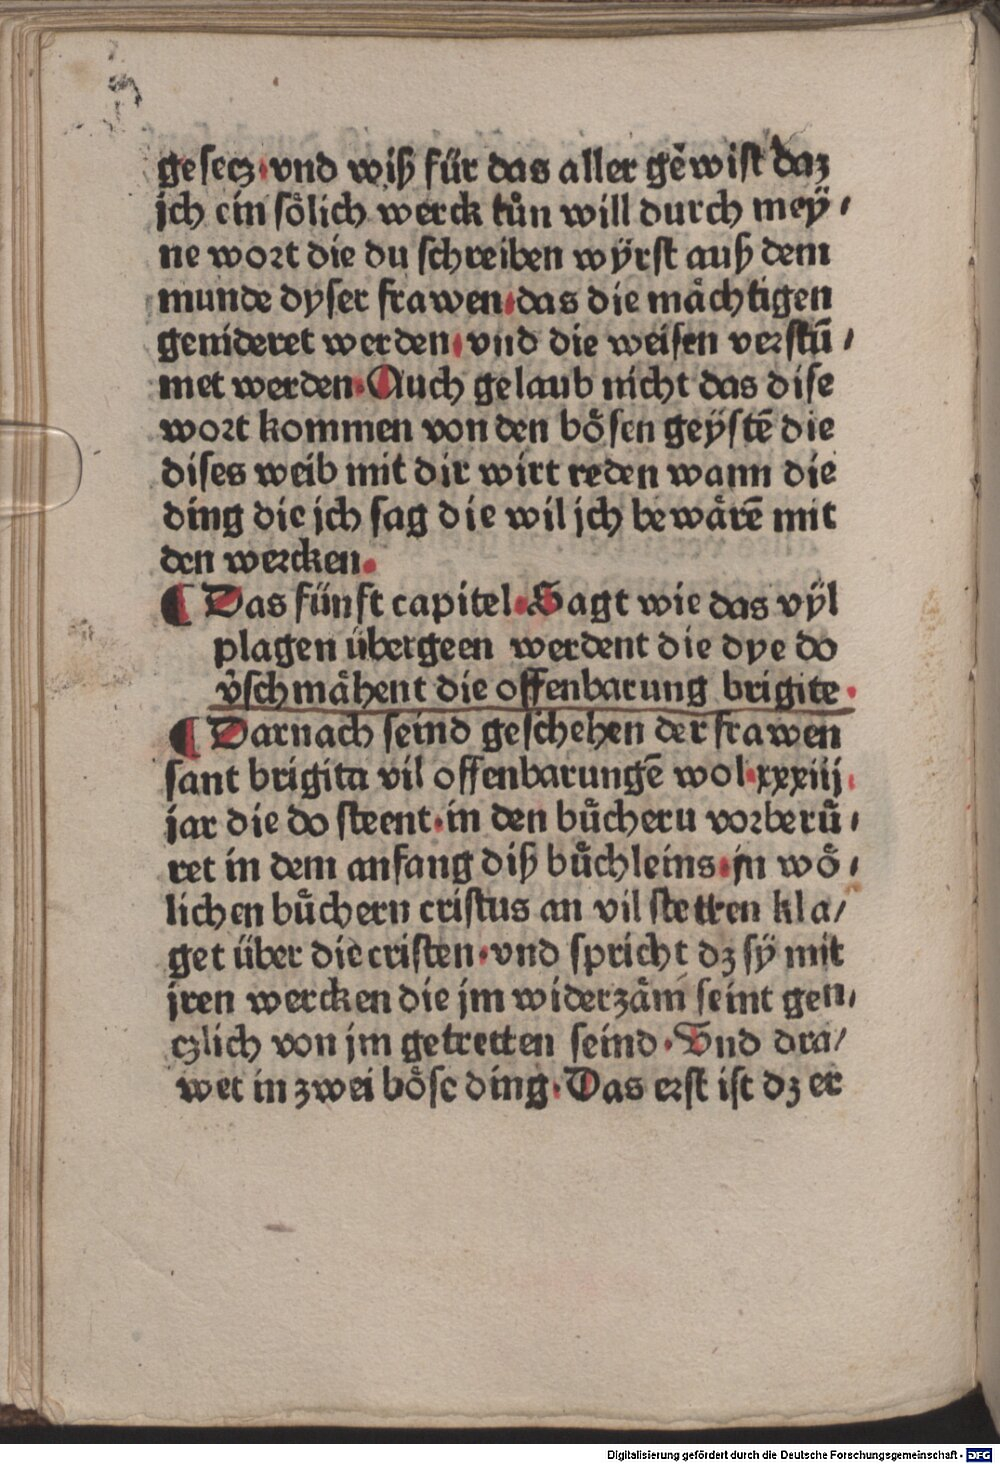 gesecz·vnd wiß für das aller gewist daz
jch ein sölich werck tůn will durch mey⸗
ne wort die du schreiben wÿrst auß dem
munde dyser frawen·das die mächtigen
genideret werden·vnd die weisen verstū⸗
met werden·Auch gelaub nicht das dise
wort kommen von den bösen geÿstē die
dises weib mit dir wirt reden wann die
ding die jch sag die wil jch bewärē mit
den wercken·
¶ Das fünft capitel·Sagt wie das vÿl
plagen übergeen werdent die dye do
v̄schmähent die offenbarung brigite·
¶ Darnach seind geschehen der frawen
sant brigita vil offenbarungē wol·xxxiiij·
jar die do steent·in den bücheru vorberü⸗
ret in dem anfang diß büchleins·jn wö⸗
lichen büchern cristus an vil stetten kla/
get über die cristen·vnd spricht dz sÿ mit
jren wercken die jm widerzäm seint gen⸗
czlich von jm getretten seind·Vnd dra/
wet in zwei böse ding·Das erst ist dz er
Digitalisierung gefördert durch die Deutsche Forschungsgemeinschaft - DFG